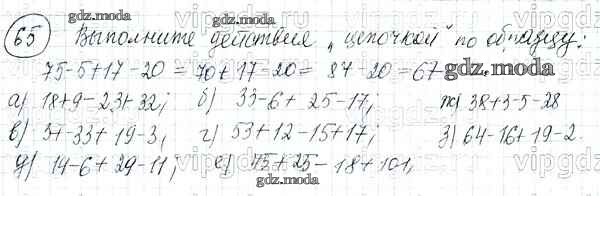 65 Выполните действия "цепочкой" по образцу:
75-5+17-20 = 70+17-20 = 87-20 = 67
а) 18+9-23+32; б) 33-6+25-17; ж) 38+3-5-28
в) 3+33+19-3, г) 53+12-15+17; з) 64-16+19-2
д) 14-6+29-11; е) 75+25-18+101,
gdz.moda
gdz.moda
gdz.moda
gdz.moda
gdz.moda